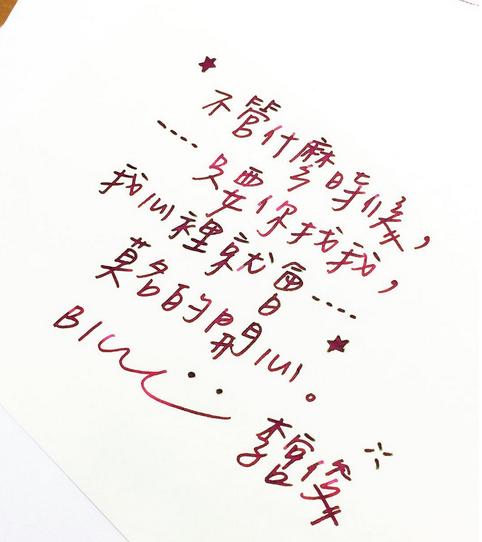 不管什麼時候，
....只要你找我，
我心裡就會....
莫名的開心。
Blue